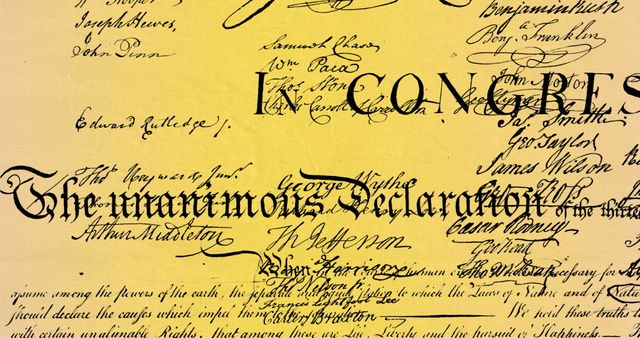 Joseph Hewes,
John Penn
Edward Rutledge /.
Thos Heyward Junr.
Arthur Middleton
Samuel Chase
Wm. Paca
Thos. Stone
George Wythe
Th Jefferson
Thos Nelson jr.
Francis Lightfoot Lee
Carter Braxton
Benjamin Rush
Benj. Franklin
John Morton
Geo Clymer
Jas. Smith
Geo. Taylor
James Wilson
Geo. Ross
Caesar Rodney
Geo Read
Tho M:Kean
IN CONGRES
The unanimous Declaration of the thirte
When
necessary for
assume among the powers of the earth, the separate and equal station to which the Laws of Nature and of Natu
should declare the causes which impel them We hold these truths to
with certain unalienable Rights, that among these are Life, Liberty and the pursuit of Happiness.—